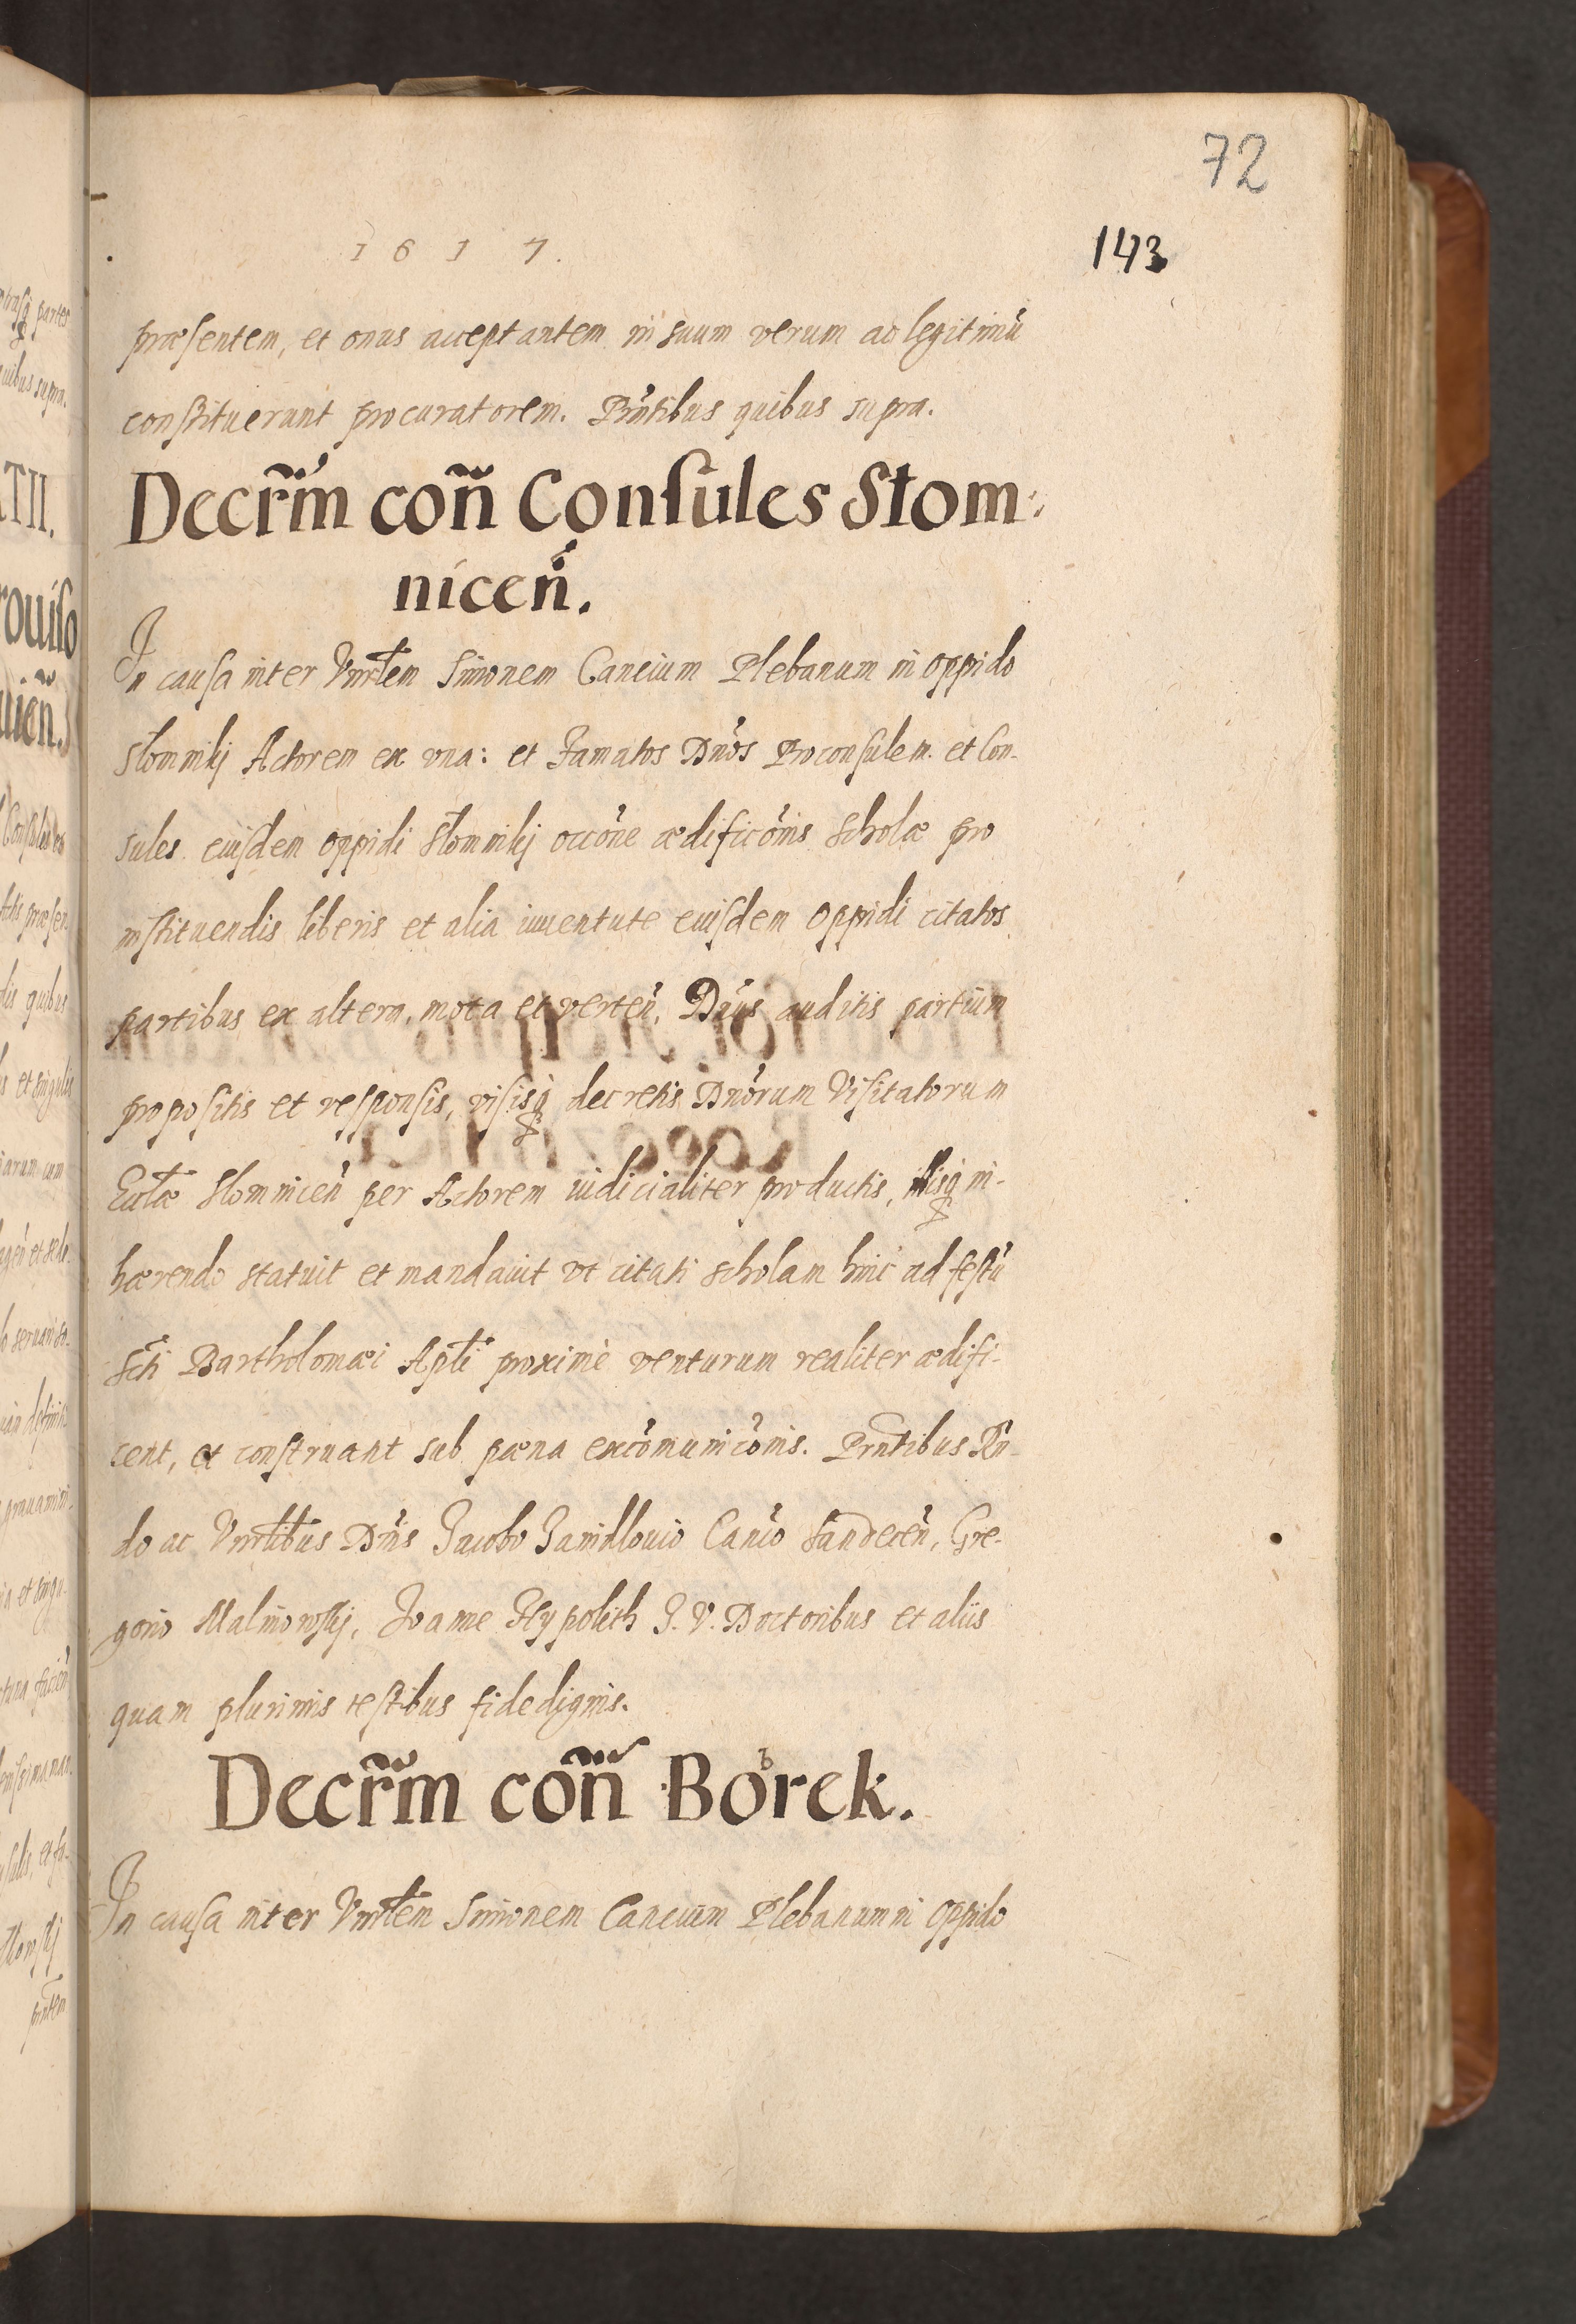 72
1617.
143
præsentem, et onus acceptantem in suum verum ac legitimũ
constituerunt procuratorem. Pñtibus quibus supra.
Decr̃m coñ Consules Stom:
niceñ.
In causa inter Vnrl̃em Simonem Cancium Plebanum in oppido
Stomnikj Actorem ex vna: et Famatos Dños Proconsulem et Con-
sules eiusdem oppidi Stomnikj occõne ædificõnis Scholæ pro
instituendis liberis et alia iuuentute eiusdem oppidi citatos
partibus ex altera, mota et verteñ, Dñus auditis partium
propositis et responsis, visisq decretis Dñorum Visitatorum
Eccl̃æ Stomniceñ per Actorem iudicialiter productis, illisq in-
hærendo statuit et mandauit vt citati scholam hinc ad festũ
Scti Bartholomæi Apl̃i proximè venturum realiter ædifi-
cent, et construant sub pæna excõmunicõnis. Prñtibus Rñ-
do ac Vnrl̃ibus Dñis Jacobo Janidlouio Canco Sandeceñ, Gre-
gorio Malinowskj, Joanne Hypolith J. V. Doctoribus et aliis
quam plurimis testibus fidedignis.
Decr̃m coñ Borek.
In causa inter Vnrl̃em Simonem Cancium Plebanum in oppido